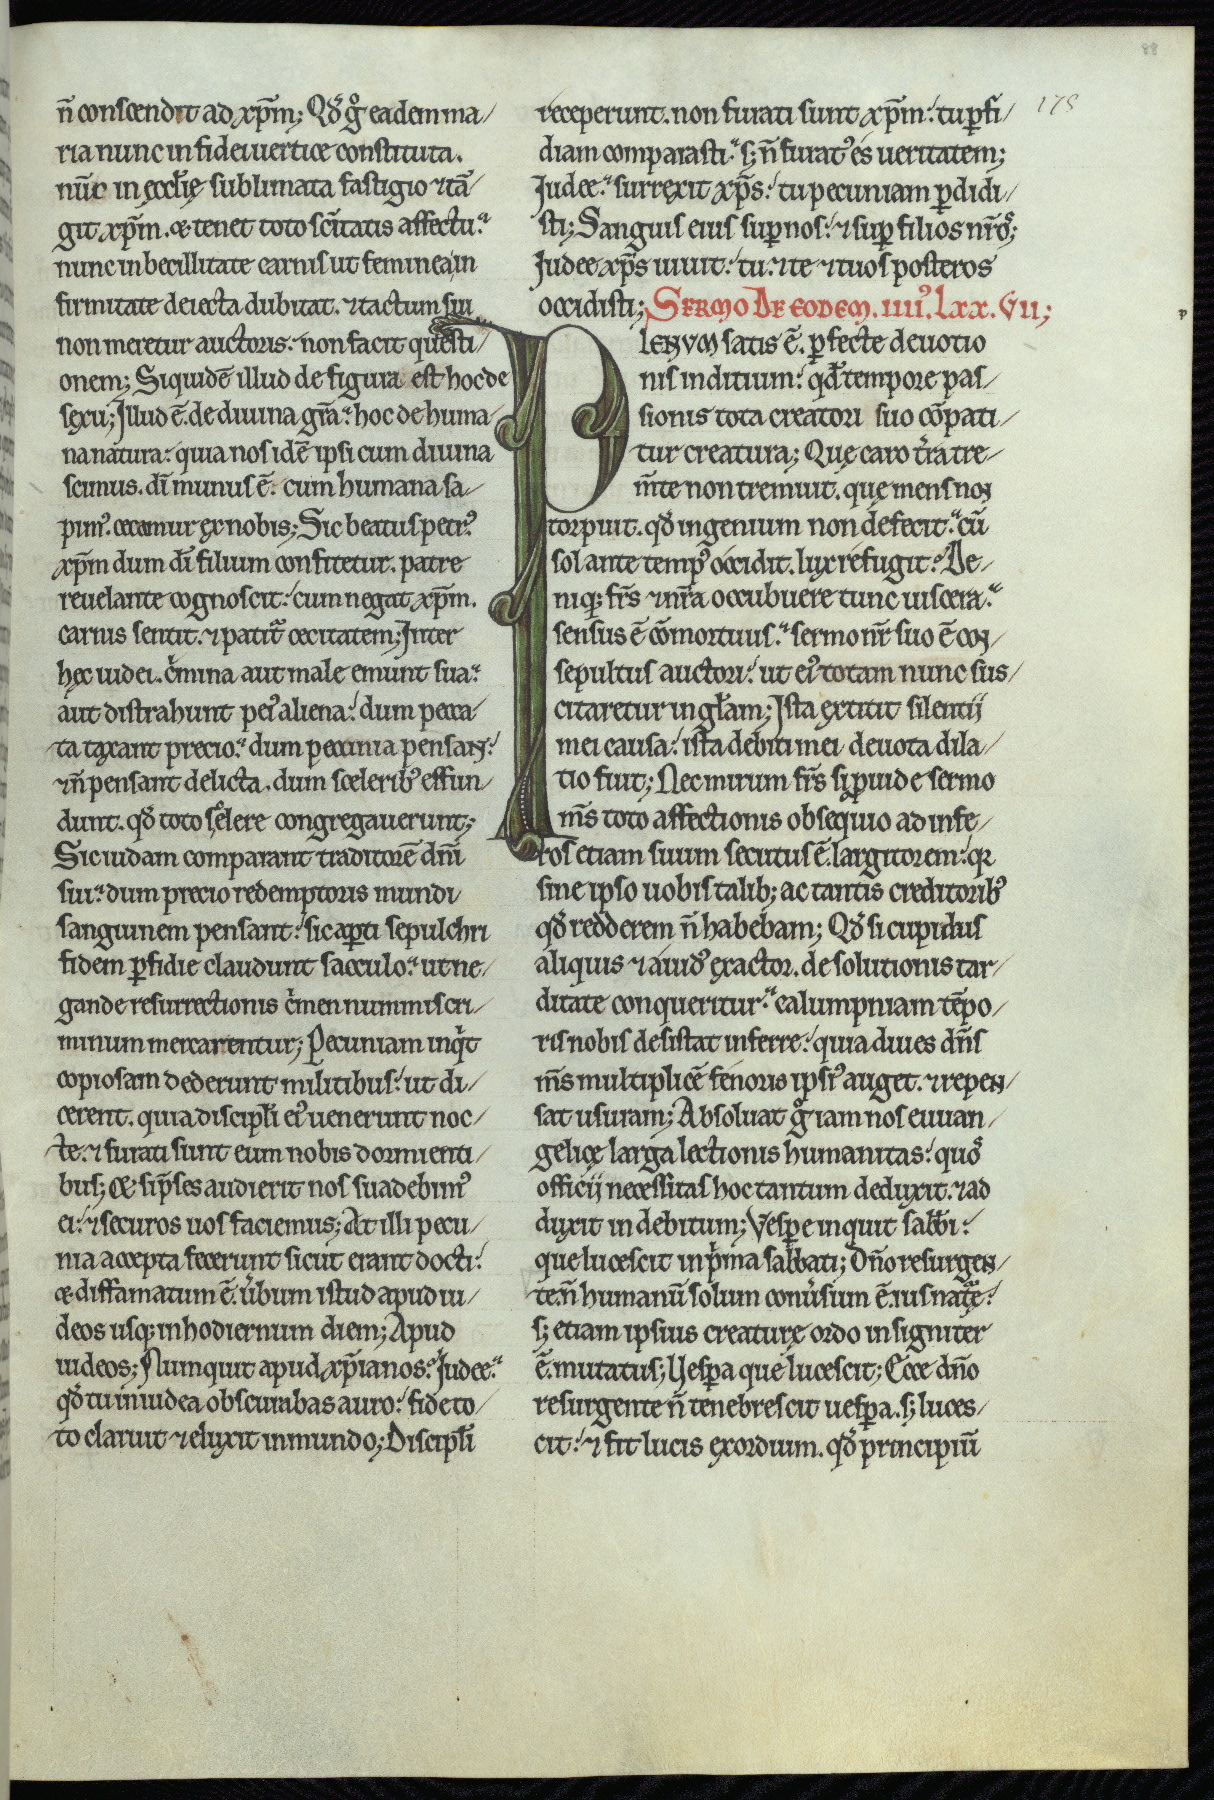 88
175
n̄ conscendit ad xp̄m; Qđ gͦ eadem ma/
ria nunc in fidei uertice constituta.
nūc in ęccl̄ię sublimata fastigio ⁊ tā/
git xp̄m. & tenet toto sc̄itatis affectu:
nunc inbecillitate carnis ut feminea in
firmitate deiecta dubitat. ⁊ tactum sui
non meretur auctoris: non facit questi/
onem; Siquidē illud de figura est hoc de
sexu; Illud ē. de diuina gr̄a: hoc de huma/
na natura: quia nos idē ipsi cum diuina
scimus. dī munus ē. cum humana sa/
pimꝰ. cecamur ex nobis; Sic beatus petrꝰ
xp̄m dum dī filium confitetur. patre
reuelante cognoscit: cum negat xp̄m.
carnis sentit. ⁊ patit᷑ cecitatem; Inter
hęc iudei. cͥmina aut male emunt sua:
aut distrahunt peiꝰ aliena: dum pecca/
ta taxant precio: dum peccunia pensant:
⁊ n̄ pensant delicta. dum sceleribꝰ effun/
dunt. qđ toto scelere congregauerunt;
Sic iudam comparant traditorē dn̄i
sui: dum precio redemptoris mundi
sanguinem pensant: sic aꝑti sepulchri
fidem ꝑfidie claudunt sacculo: ut ne/
gande resurrectionis cͥmen nummis cri/
minum mercarentur; Pecuniam inqͥt
copiosam dederunt militibus: ut di/
cerent. quia discipl̄i eiꝰ uenerunt noc/
te. ⁊ furati sunt eum nobis dormienti/
bus; & si p̄ses audierit nos suadebimꝰ
ei: ⁊ securos uos faciemus; At illi pecu/
nia accepta fecerunt sicut erant docti:
& diffamatum ē. ūbum istud apud iu/
deos usqꝫ in hodiernum diem; Apud
iudeos; Numquit apud xp̄ianos? Iudee:
qđ tu in iudea obscurabas auro: fide to/
to claruit ⁊ eluxit in mundo; Discipl̄i
receperunt. non furati sunt xp̄m: tu ꝑfi/
diam comparasti: sꝫ n̄ furatꝰ es ueritatem;
Iudee: surrexit xp̄s: tu pecuniam ꝑdidi/
sti; Sanguis eius suꝑ nos: ⁊ suꝑ filios nr̄oˢ;
Iudee xp̄s uiuit: tu. ⁊ te ⁊ tuos posteros
occidisti; SERMO DE EODEM. IIIIꝰ. LXX. VII;
p
PLENVM satis ē. ꝑfecte deuotio
nis inditium: qđ tempore pas/
sionis tota creatori suo cōpati/
tur creatura; Quę caro t̄ra tre/
m̄te non tremuit. quę mens non
torpuit. qđ ingenium non defecit: cū
sol ante tempꝰ occidit. lux refugit? De/
niqꝫ fr̄s ⁊ nr̄a occubuere tunc uiscera:
sensus ē cōmortuus: sermo nr̄ suo ē con/
sepultus auctori: ut eiꝰ totam nunc sus/
citaretur in gl̄am; Ista extitit silentij
mei causa: ista debiti mei deuota dila/
tio fuit; Nec mirum fr̄s si ꝓuide sermo
m̄s toto affectionis obsequio ad infe/
ros etiam suum secutus ē. largitorem: qꝛ
sine ipso uobis talibꝫ ac tantis creditoribꝰ
qđ redderem n̄ habebam; Qđ si cupidus
aliquis ⁊ auidꝰ exactor. de solutionis tar/
ditate conqueritur: calumpniam tēpo/
ris nobis desistat inferre: quia diues dn̄s
m̄s multiplicē fenoris ipsiꝰ auget. ⁊ repen/
sat usuram; Absoluat gͦ iam nos euuan/
gelicę larga lectionis humanitas: quoˢ
officij necessitas hoc tantum deduxit. ⁊ ad
duxit in debitum; Vesꝑe inquit sabbi:
que lucescit in pͥma sabbati; Dn̄o resurgen/
te. n̄ humanū solum conūsum ē. ius natᵃę:
sꝫ etiam ipsius creaturę ordo insigniter
ē. mutatus; Vesꝑa que lucescit; Ecce dn̄o
resurgente n̄ tenebrescit uesꝑa. sꝫ luces/
cit: ⁊ fit lucis exordium. qđ principiū